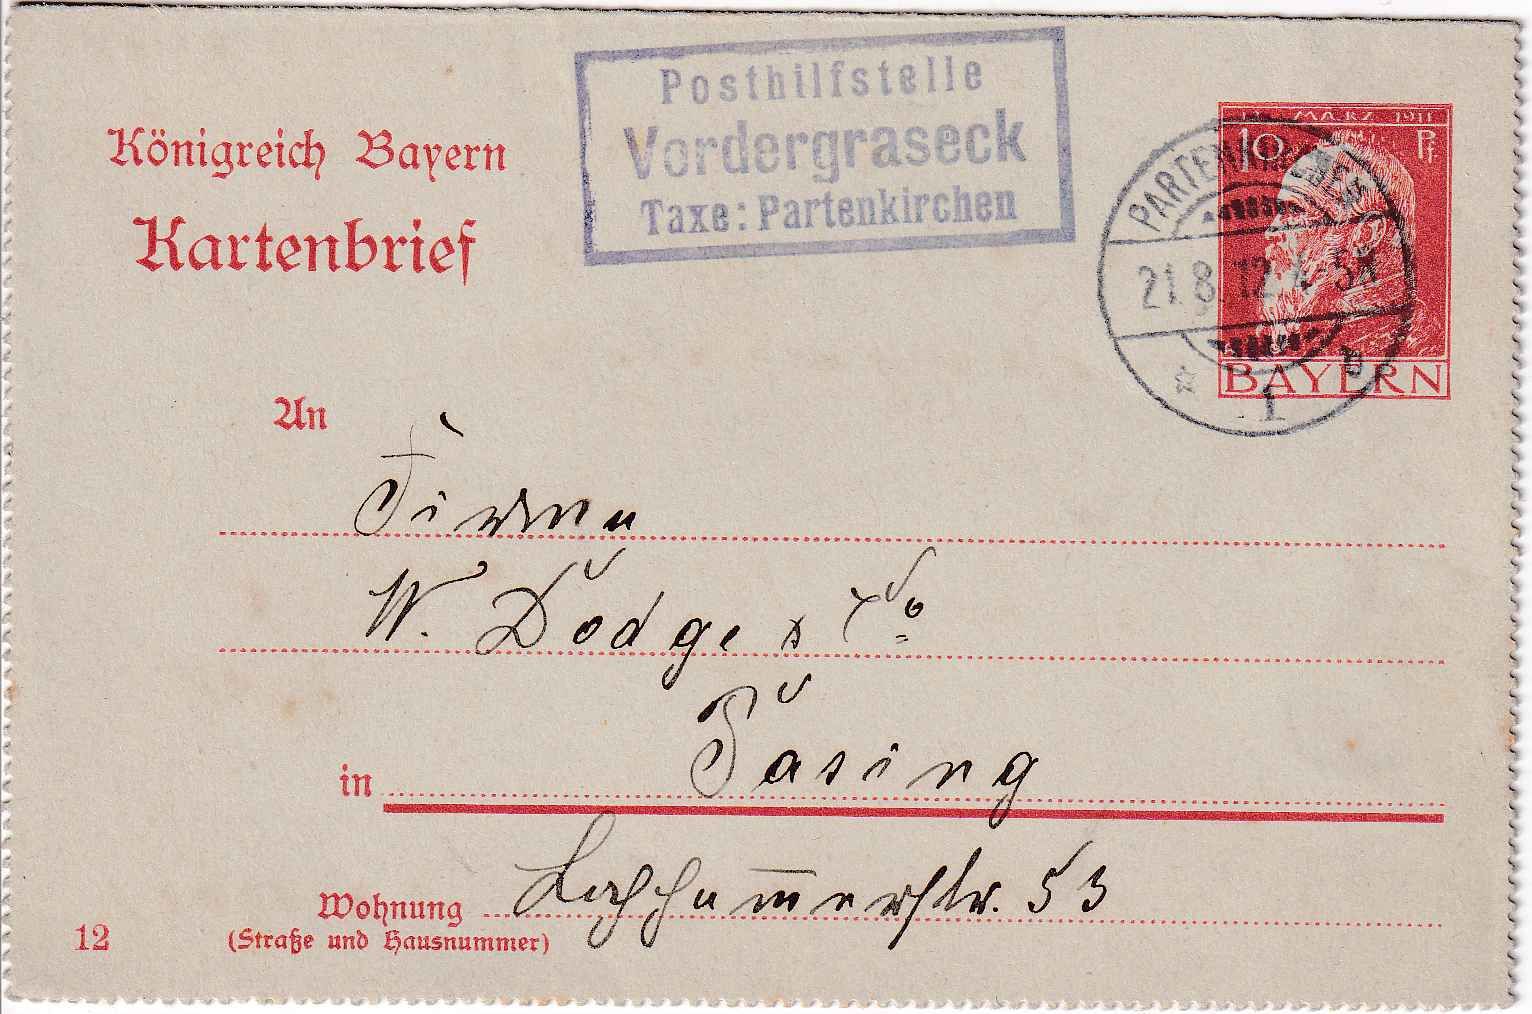 Posthilfstelle
Vordergraseck
Taxe: Partenkirchen
Königreich Bayern
Kartenbrief
MÄRZ 1911
10 Pf
BAYERN
PARTENKIRCHEN
21. 8. 12. 4-5N
1
An
Firma
W. Dodge & Co
in Pasing
Wohnung
(Straße und Hausnummer)
53
12